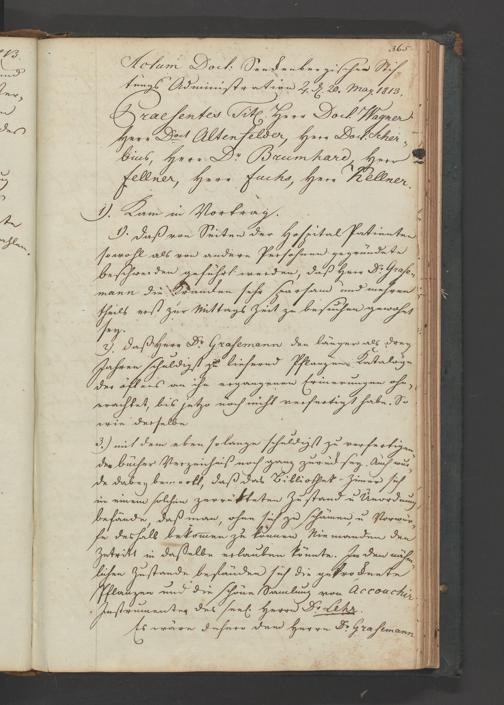 365.
Actum Doct. Senckenbergischen Stif-
tungs Administration d. 20. May 1813.
Praesentes Tit. Herr Doct Wagner
Herr Doct Altenfelder, Herr Doct. Scher-
bius, Herr Dr Baumhard, Herr
Fellner, Herr Fuchs, Herr Kellner.
1). Kam in Vortrag.
1). Daß von Seiten der Hospital Patienten
sowohl als von andern Persohnen gegründete
beschwerden geführt werden, daß Herr Dr. Grase-
mann die Kranken sehr sparsam und mehren
theils erst zur Mittags Zeit zu besuchen gewohnt
sey.
2). Daß Herr Dr Grasemann den länger als drey
Jahren schuldigst zu liefernd Pflanzen Katalog
der öfters an ihn ergangenen Erinnerungen ohn-
erachtet, bis jetzo noch nicht verfertigt habe. So
wie derselbe
3.) mit dem eben so lange schuldigst zu verfertigen
der bücher Verzeichnis noch ganz zurück sey. Auch wur-
de dabey bemerkt, daß das Bibliothek-Zimer sich
in einem solchen zerrütteten Zustand u Unordnung
befände, daß man, ohne sich zu schämen u Vorwür-
fe deshalb bekomen zu können, Niemanden den
Zutritt in dasselbe erlauben könnte. In dem nähm-
lichen Zustande befänden sich die getrocknete
Pflanzen und die schöne Samlung von Accouchir
Instrumenten des seel. Herrn Dr. Lehr.
Es wäre daher dem Herrn Dr. Grasemann